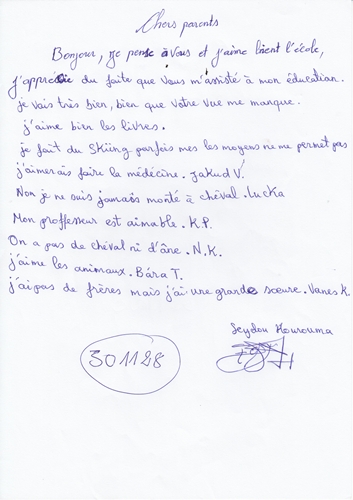 Chers parents
Bonjour, je pense à Vous et j'aime bient l'école,
j'apprécie du faite que Vous m'assisté à mon éducation.
je vais très bien, bien que Votre vue me manque.
j'aime bien les livres.
je fait du Skiing parfois mes les moyens ne me permet pas
j'aimerais faire la médécine. Jakud V.
Non je ne suis jamais monté à chéval. Lucka
Mon proffesseur est aimable. K.P.
On a pas de cheval ni d'âne. N.K.
j'aime les animaux. Bára T.
j'ai pas de frères mais j'ai une grande soeure. Vanes K.
Seydou Kourouma
301128